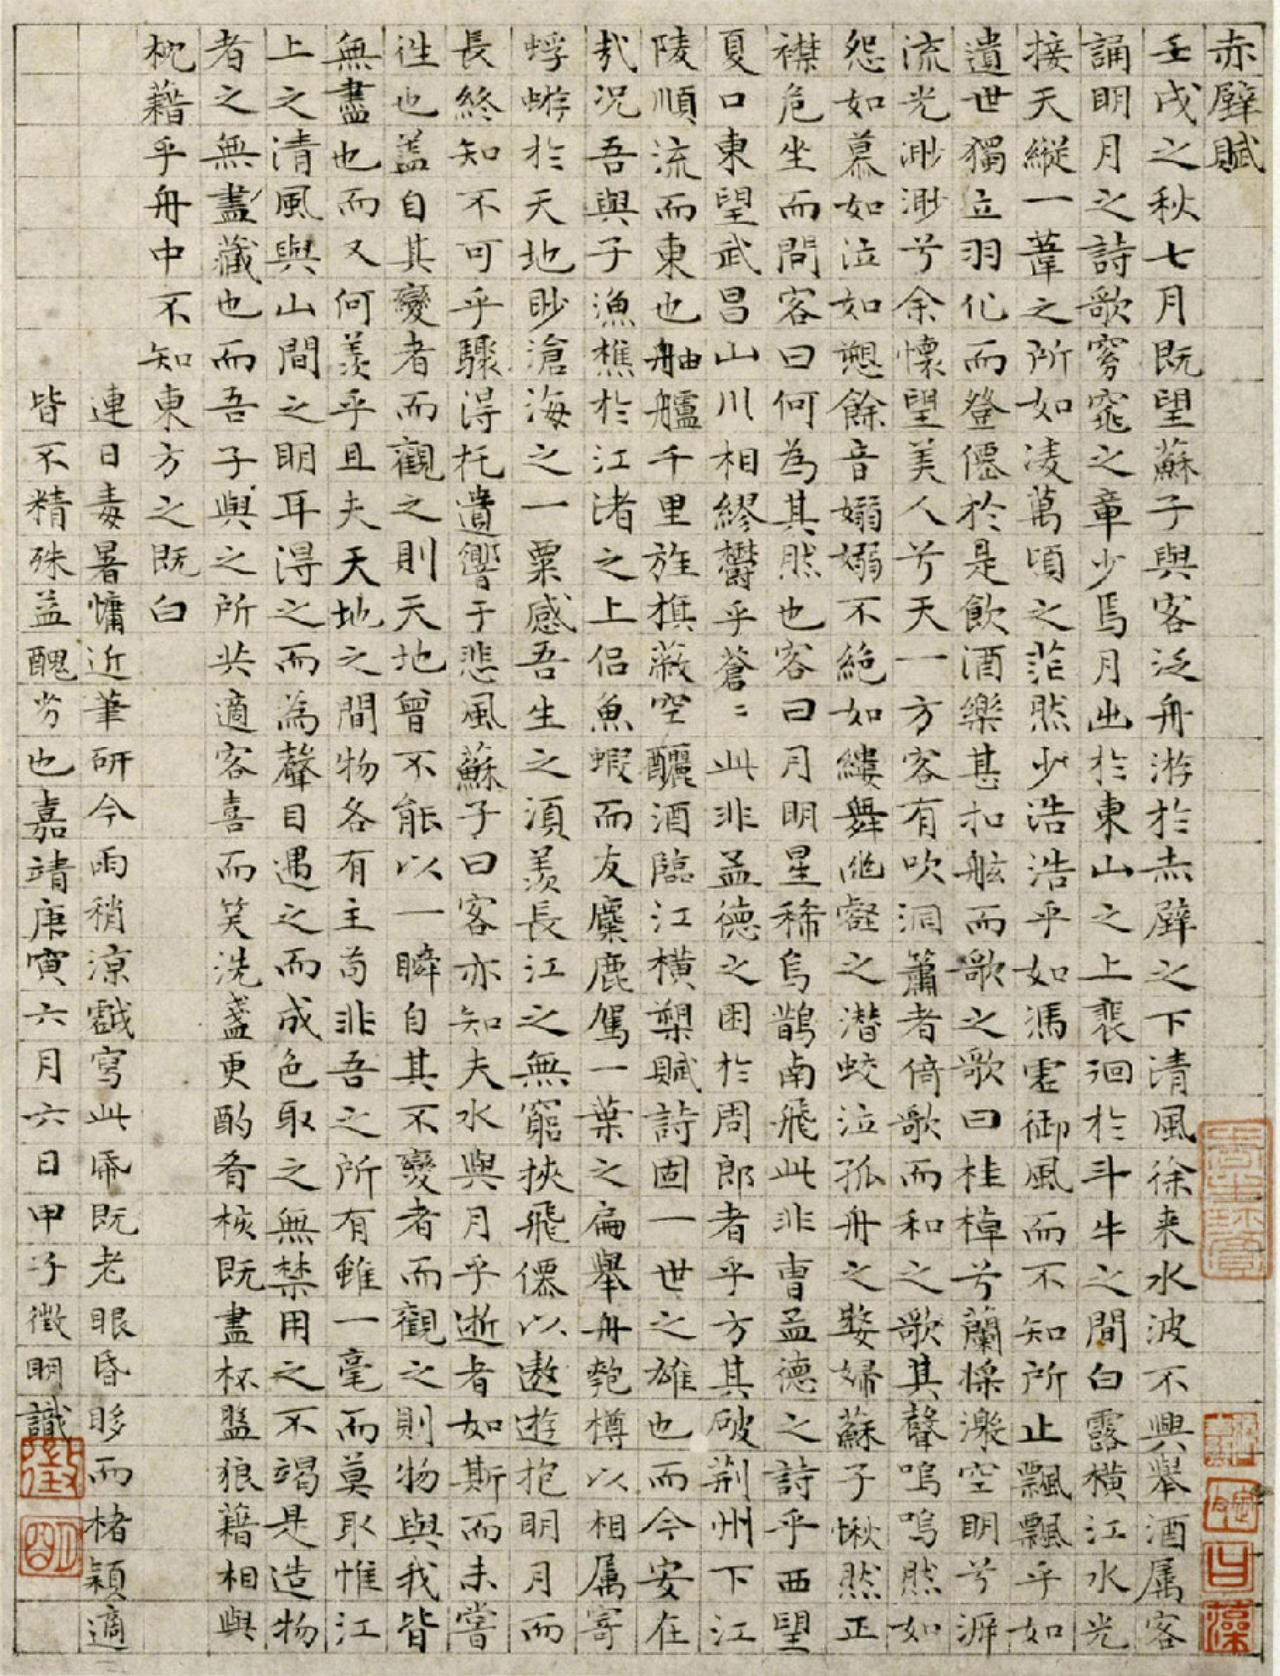 赤壁賦
壬戌之秋七月既望蘇子與客泛舟游於赤壁之下清風徐来水波不興舉酒属客
誦明月之詩歌窈窕之章少焉月出於東山之上裴洄於斗牛之間白露橫江水光
接天縱一葦之所如凌萬頃之茫然少浩浩乎如馮虛御風而不知所止飄飄乎如
遺世獨立羽化而登僊於是飲酒樂甚扣舷而歌之歌曰桂棹兮蘭槳激空明兮泝
流光渺渺兮余懷望美人兮天一方客有吹洞簫者倚歌而和之歌其聲嗚嗚然如
怨如慕如泣如愬餘音嫋嫋不絕如縷舞幽壑之潛蛟泣孤舟之嫠婦蘇子愀然正
襟危坐而問客曰何為其然也客曰月明星稀烏鵲南飛此非曹孟德之詩乎西望
夏口東望武昌山川相繆欝乎蒼〻此非孟德之困於周郎者乎方其破荊州下江
陵順流而東也舳艫千里旌旗蔽空釃酒臨江橫槊賦詩固一世之雄也而今安在
㦲况吾與子漁樵於江渚之上侣魚蝦而友麋鹿駕一葉之扁舉舟匏樽以相属寄
蜉蝣於天地眇滄海之一粟感吾生之湏羨長江之無窮挾飛僊以遨遊抱明月而
長終知不可乎驟淂托遺響于悲風蘇子曰客亦知夫水與月乎逝者如斯而未嘗
徃也盖自其變者而觀之則天地曾不能以一瞬自其不變者而觀之則物與我皆
無盡也而又何羨乎且夫天地之間物各有主苟非吾之所有雖一毫而莫取惟江
上之清風與山間之明耳淂之而為聲目遇之而成色取之無禁用之不竭是造物
者之無盡藏也而吾子與之所共適客喜而笑洗盞更酌肴核既盡杯盤狼籍相與
枕藉乎舟中不知東方之既白
連日毒暑慵近筆研今雨稍涼戲寫此𠕋既老眼昏眵而楮穎適
皆不精殊益醜劣也嘉靖庚寅六月六日甲子徵明識
徵
明